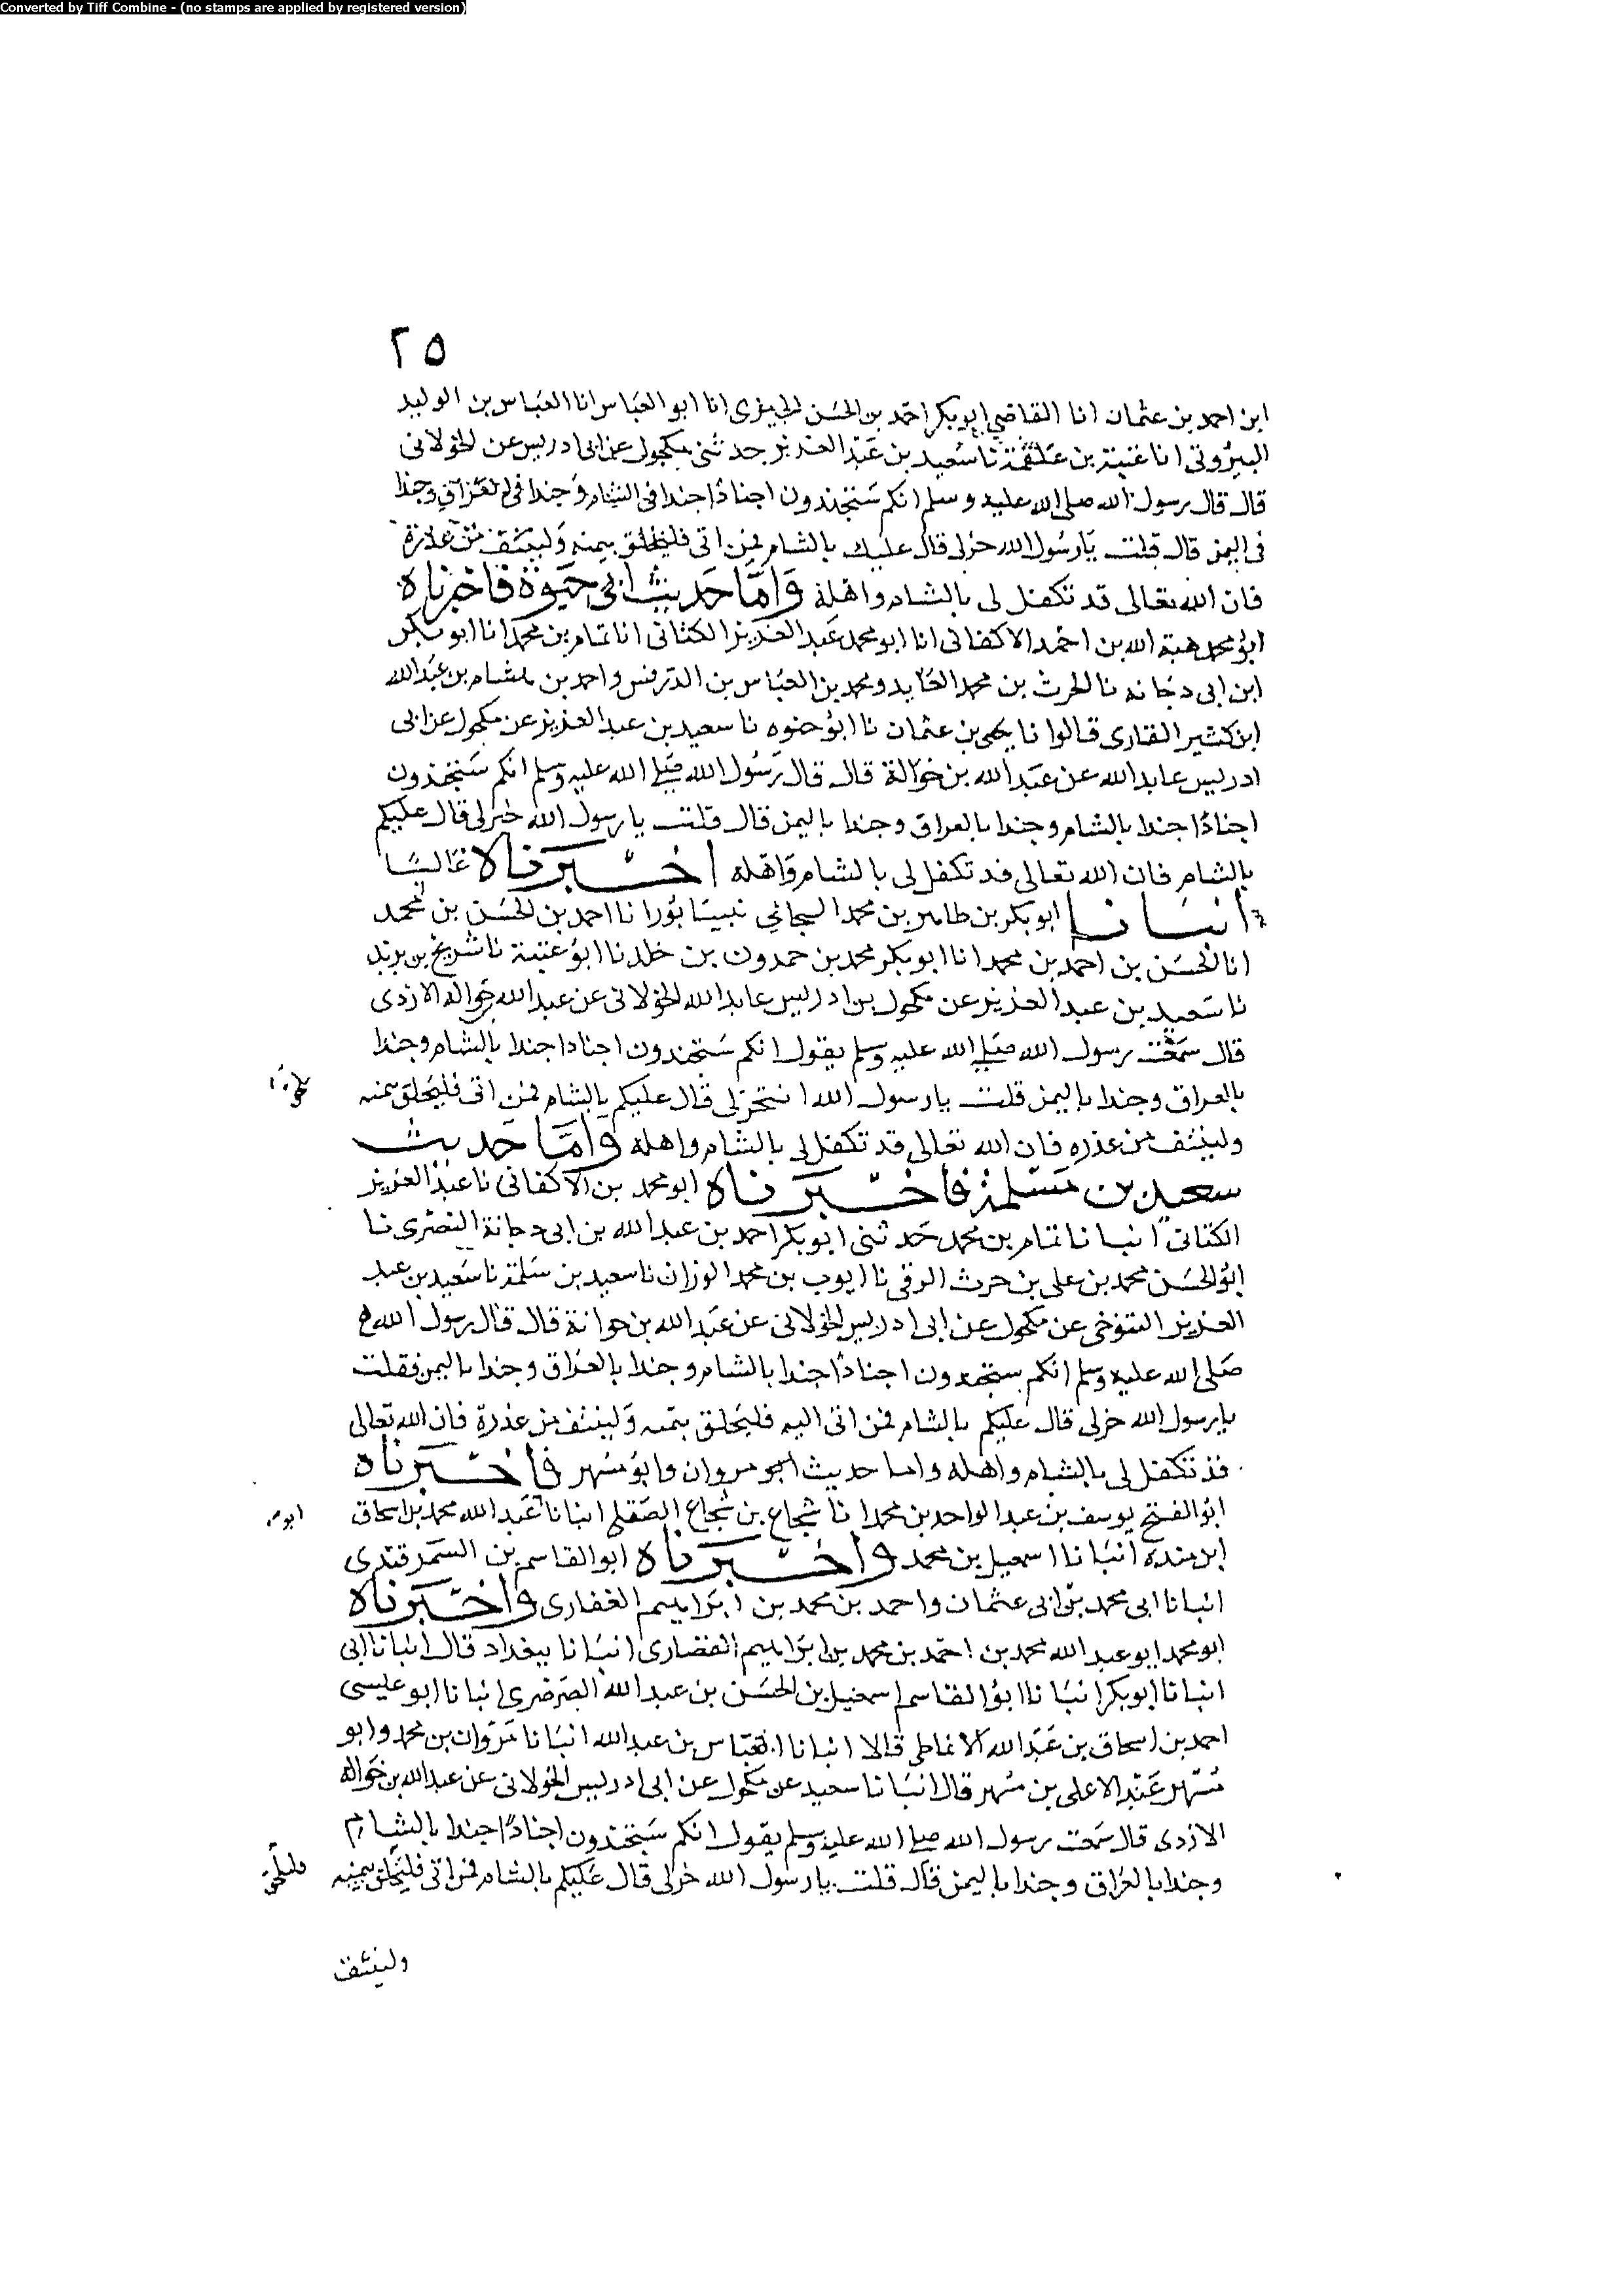 Converted by Tiff Combine - (no stamps are applied by registered version)
٢٥
ابن احمد بن عثمان انا القاضي ابو بكر احمد بن الحسن الحيرى انا ابو العباس انا العباس بن الوليد
البيروتى انا عقبة بن علقمة نا سعيد بن عبد العزيز حدثنى مكحول عن ابى ادريس عن الخولانى
قال قال رسول الله صلى الله عليه وسلم انكم ستجندون اجنادا جندا فى الشام وجندا فى العراق وجندا
فى اليمن قال قلت يا رسول الله خر لى قال عليك بالشام فمن ابى فليلحق بيمنه وليستق من غدره
فان الله تعالى قد تكفل لى بالشام واهله وَامَّا حَديث ابى حَيوة فاخبرناه
ابو محمد هبة الله بن احمد الاكفانى انا ابو محمد عبد العزيز الكتانى انا تمام بن محمد انا ابو بكر
ابن ابى دجانه نا الحرث بن محمد العابد ومحمد بن العباس بن الدرفس واحمد بن هشام بن عبد الله
ابن كثير القارى قالوا نا يحيى بن عثمان نا ابو حيوه نا سعيد بن عبد العزيز عن مكحول عن ابى
ادريس عايد الله عن عبد الله بن حوالة قال قال رسول الله صلى الله عليه وسلم انكم ستجندون
اجنادا جندا بالشام وجندا بالعراق وجندا باليمن قال قلت يا رسول الله خر لى قال عليكم
بالشام فان الله تعالى قد تكفل لى بالشام واهله اخبرناه عاليا
انبانا ابو بكر بن طاهر بن محمد نيسابور انا احمد بن الحسن بن محمد
انا الحسن بن احمد بن محمد انا ابو بكر محمد بن حمدون بن خلد نا ابو عتبة نا شريح بن يزيد
نا سعيد بن عبد العزيز عن مكحول بن ادريس عايد الله الخولانى عن عبد الله حوالة الازدى
قال سمعت رسول الله صلى الله عليه وسلم يقول انكم ستجندون اجنادا جندا بالشام وجندا
بالعراق وجندا باليمن قلت يا رسول الله خر لى قال عليكم بالشام فمن ابى فليلحق بيمنه
وليستق من غدره فان الله تعالى قد تكفل لى بالشام واهله وَامَّا حَديث
سعيد بن مسلمة فاخبرناه ابو محمد بن الاكفانى نا عبد العزيز
الكتانى انبانا تمام بن محمد حدثنى ابو بكر احمد بن عبد الله بن ابى دجانة النصرى نا
ابو الحسن محمد بن على بن حرث الرقى نا ايوب بن محمد الوزان نا سعيد بن سلمة نا سعيد بن عبد
العزيز التنوخى عن مكحول عن ابى ادريس الخولانى عن عبد الله بن حوالة قال قال رسول الله
صلى الله عليه وسلم انكم ستجندون اجنادا جندا بالشام وجندا بالعراق وجندا باليمن فقلت
يا رسول الله خر لى قال عليكم بالشام فمن ابى اليه فليلحق بيمنه وليستق من غدره فان الله تعالى
قد تكفل لى بالشام واهله واما حديث ابو مروان وابو مسهر فاخبرناه
ابو الفتح يوسف بن عبد الواحد بن محمد انا شجاع بن شجاع الصقلى انبانا عبد الله محمد بن اسحاق
ابن منده انبانا اسمعيل بن محمد واخبرناه ابو القاسم بن السمرقندى
انبانا ابى محمد بن ابى عثمان واحمد بن محمد بن ابراهيم الغفارى واخبرناه
ابو محمد ابو عبد الله محمد بن احمد بن محمد بن ابراهيم القصارى انبانا ببغداد قال انبانا ابى
انبانا ابو بكر انبانا ابو القاسم اسمعيل بن الحسن بن عبد الله الصرصرى انبانا ابو عيسى
احمد بن اسحاق بن عبد الله الانماطى قالا انبانا العباس بن عبد الله انبانا مروان بن محمد وابو
مسهر عبد الاعلى بن مسهر قالا انبانا سعيد عن مكحول عن ابى ادريس الخولانى عن عبد الله بن حوالة
الازدى قال سمعت رسول الله صلى الله عليه وسلم يقول انكم ستجندون اجنادا جندا بالشام
وجندا بالعراق وجندا باليمن قال قلت يا رسول الله خر لى قال عليكم بالشام فمن ابى فليلحق بيمنه
فليلحق